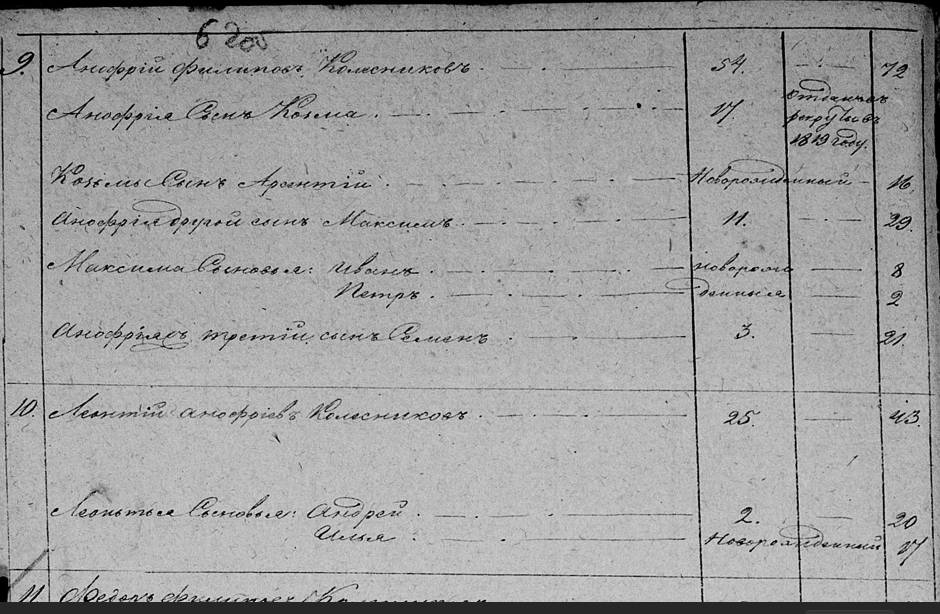 9. Анофрій Филиповъ Колесниковъ. 54. 72
Анофрія Сынъ Козма. 17. отданъ въ рекруты въ 1819 году.
Козьмы Сынъ Арсентій. Новорожденный 16.
Анофрія другой сынъ Максимъ 11. 29.
Максима Сыновья: Иванъ. новорож 8
Петръ. денныя 2
Анофріяхъ третій сынъ Семенъ 3. 21.
10. Леонтій Анофріевъ Колесниковъ 25. 43.
Леонтья Сыновья: Андрей. 2. 20
Илья Новорожденный 17
11. Федоръ Филиповъ